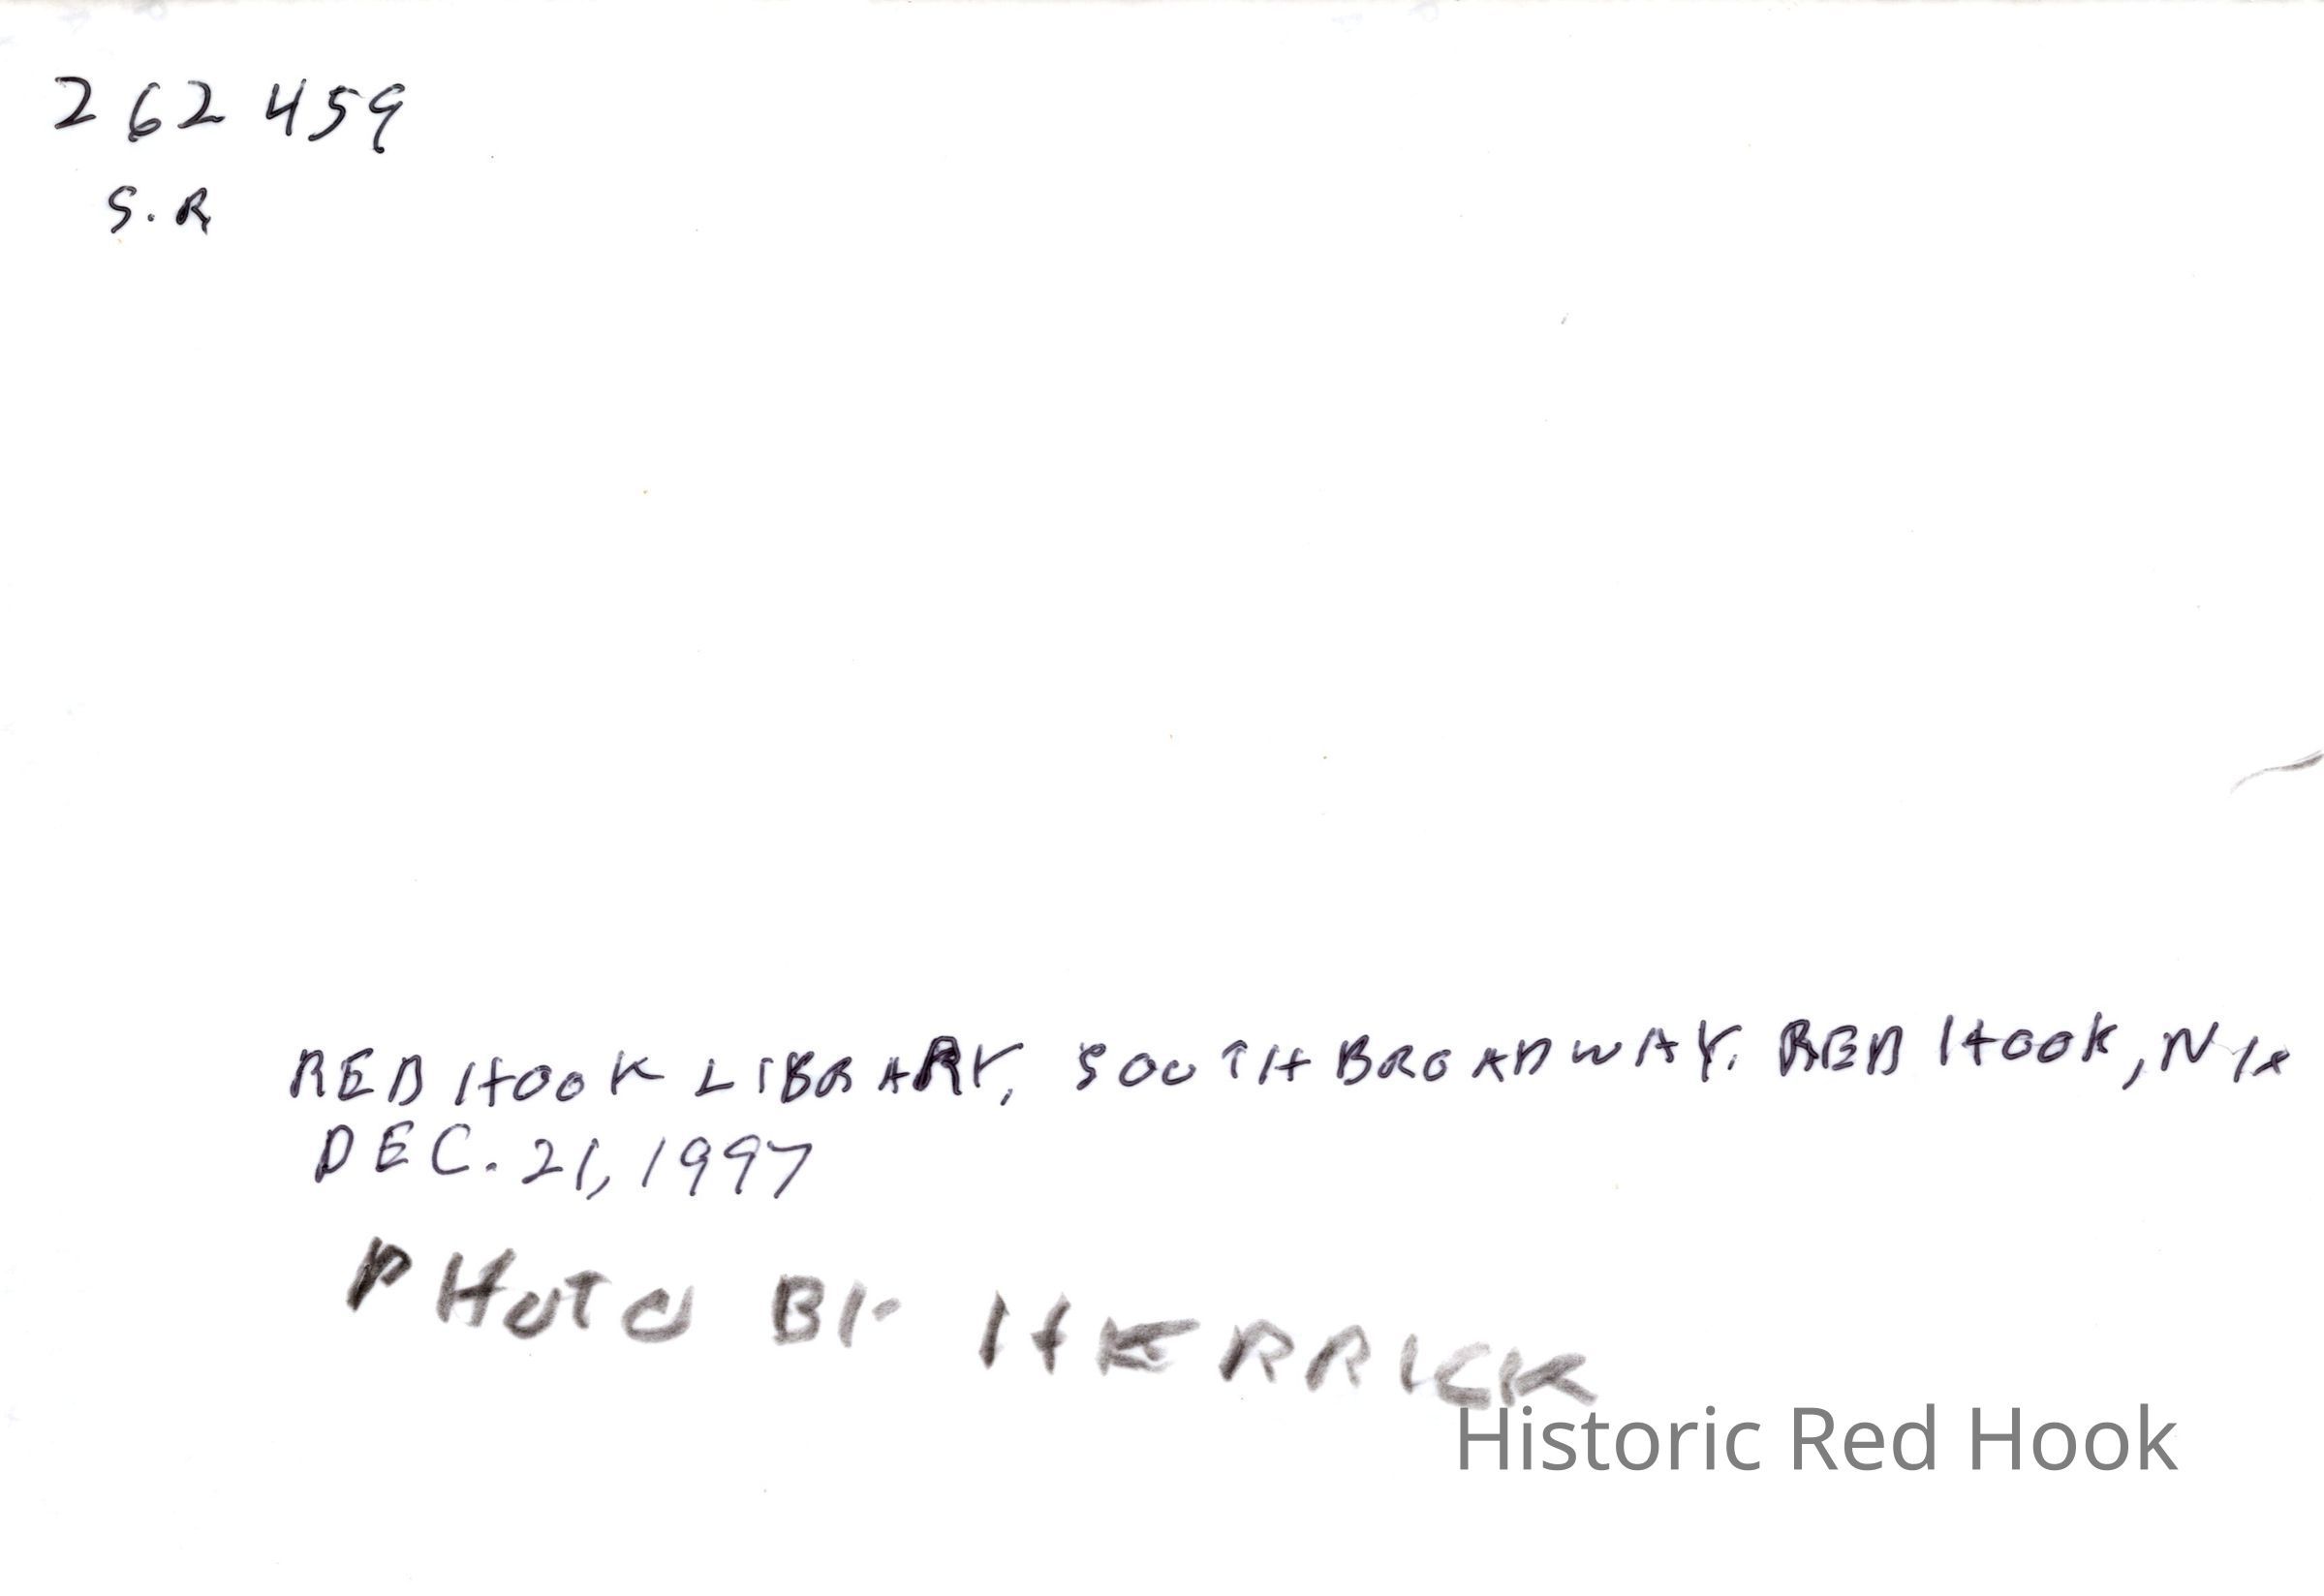 262 459
S.R
RED HOOK LIBRARY, SOUTH BROADWAY. RED HOOK, NY.
DEC. 21, 1997
PHOTO BY HERRICK
Historic Red Hook